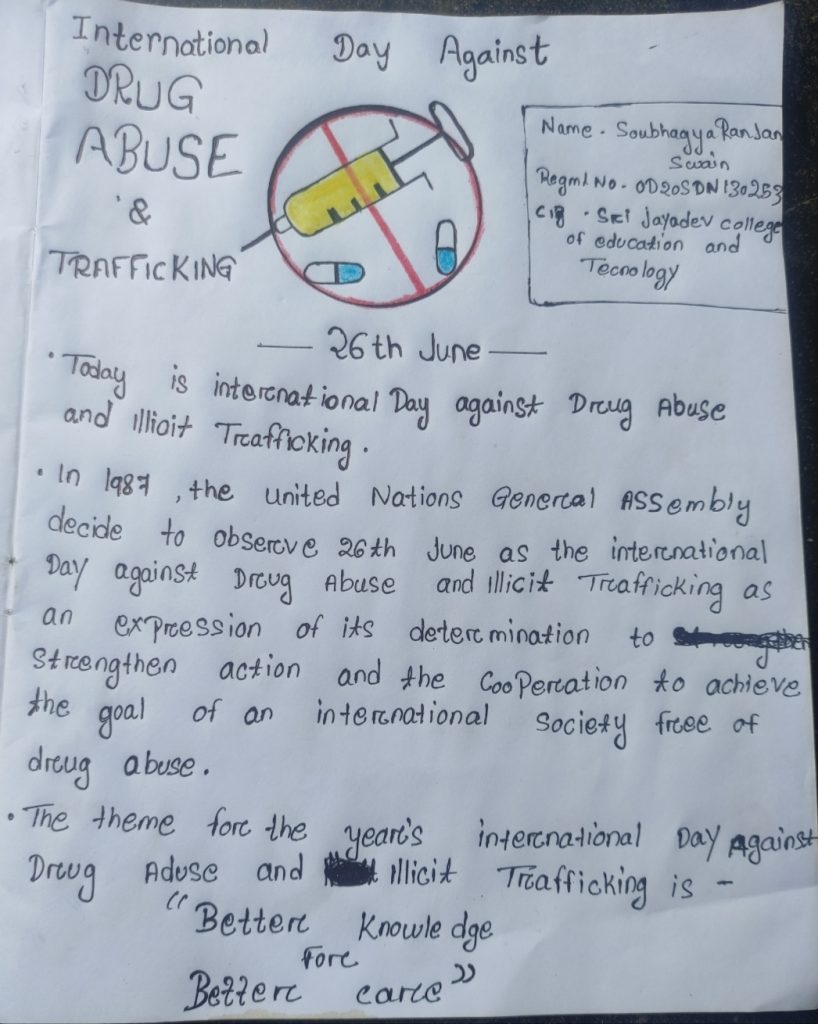 International Day Against
DRUG
ABUSE
&
TRAFFICKING
Name - Soubhagya Ranjan
Swain
Regml No - OD20SDN130253
Clg - Sri Jayadev college
of education and
Tecnology
26th June
• Today is international Day against Drug Abuse
and illioit Trafficking.
• In 1987, the united Nations General Assembly
decide to observe 26th June as the international
Day against Drug Abuse and illicit Trafficking as
an expression of its determination to
Strengthen action and the CooPeration to achieve
the goal of an international Society free of
drug abuse.
• The theme for the year's international Day Against
Drug Aduse and illicit Trafficking is -
"Better Knowledge
For
Better care"